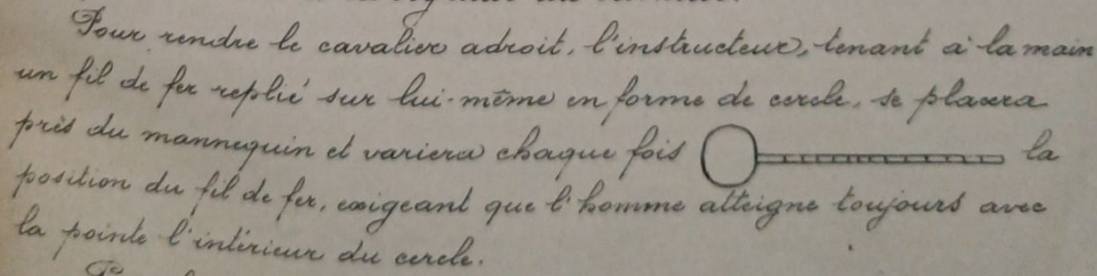 Pour rendre le cavalier adroit, l'instructeur, tenant à la main
un fil de fer replié sur lui-même en forme de cercle, se placera
près du mannequin et variera chaque fois la
position du fil de fer, exigeant que l'homme atteigne toujours avec
la pointe l'intérieur du cercle.